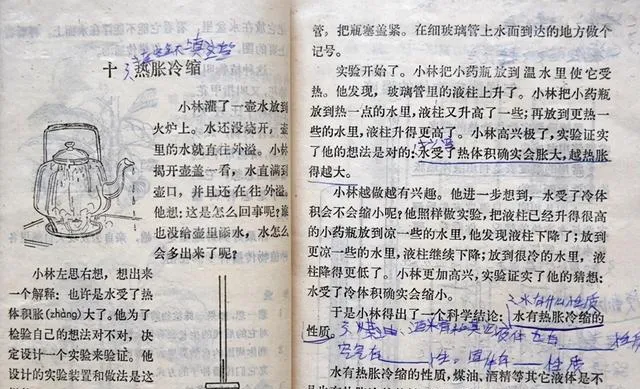 十 热胀冷缩
小林灌了一壶水放到
火炉上。水还没烧开，壶
里的水就直往外溢。小林
揭开壶盖一看，水直满到
壶口，并且还在往外溢。
他想：这是怎么回事呢？谁
也没给壶里添水，水怎么
会多出来了呢？
小林左思右想，想出来
一个解释：也许是水受了热
体积胀(zhàng)大了。他为了
检验自己的想法对不对，决
定设计一个实验来验证。他
设计的实验装置和做法是这
管，把瓶塞盖紧。在细玻璃管上水面到达的地方做个
记号。
实验开始了。小林把小药瓶放到温水里使它受
热。他发现，玻璃管里的液柱上升了。小林把小药瓶
放到热一点的水里，液柱又升高了一些；再放到更热一
些的水里，液柱升得更高了。小林高兴极了，实验证实
了他的想法是对的：水受了热体积确实会胀大，越热胀
得越大。
小林越做越有兴趣。他进一步想到，水受了冷体
积会不会缩小呢？他照样做实验，把液柱已经升得很高
的小药瓶放到凉一些的水里，他发现液柱下降了；放到
更凉一些的水里，液柱继续下降；放到很冷的水里，液
柱降得更低了。小林更加高兴，实验证实了他的猜想：
水受了冷体积确实会缩小。
水有什么性质
于是小林得出了一个科学结论：水有热胀冷缩的
性质。
水有热胀冷缩的性质，煤油、酒精等其它液体是不